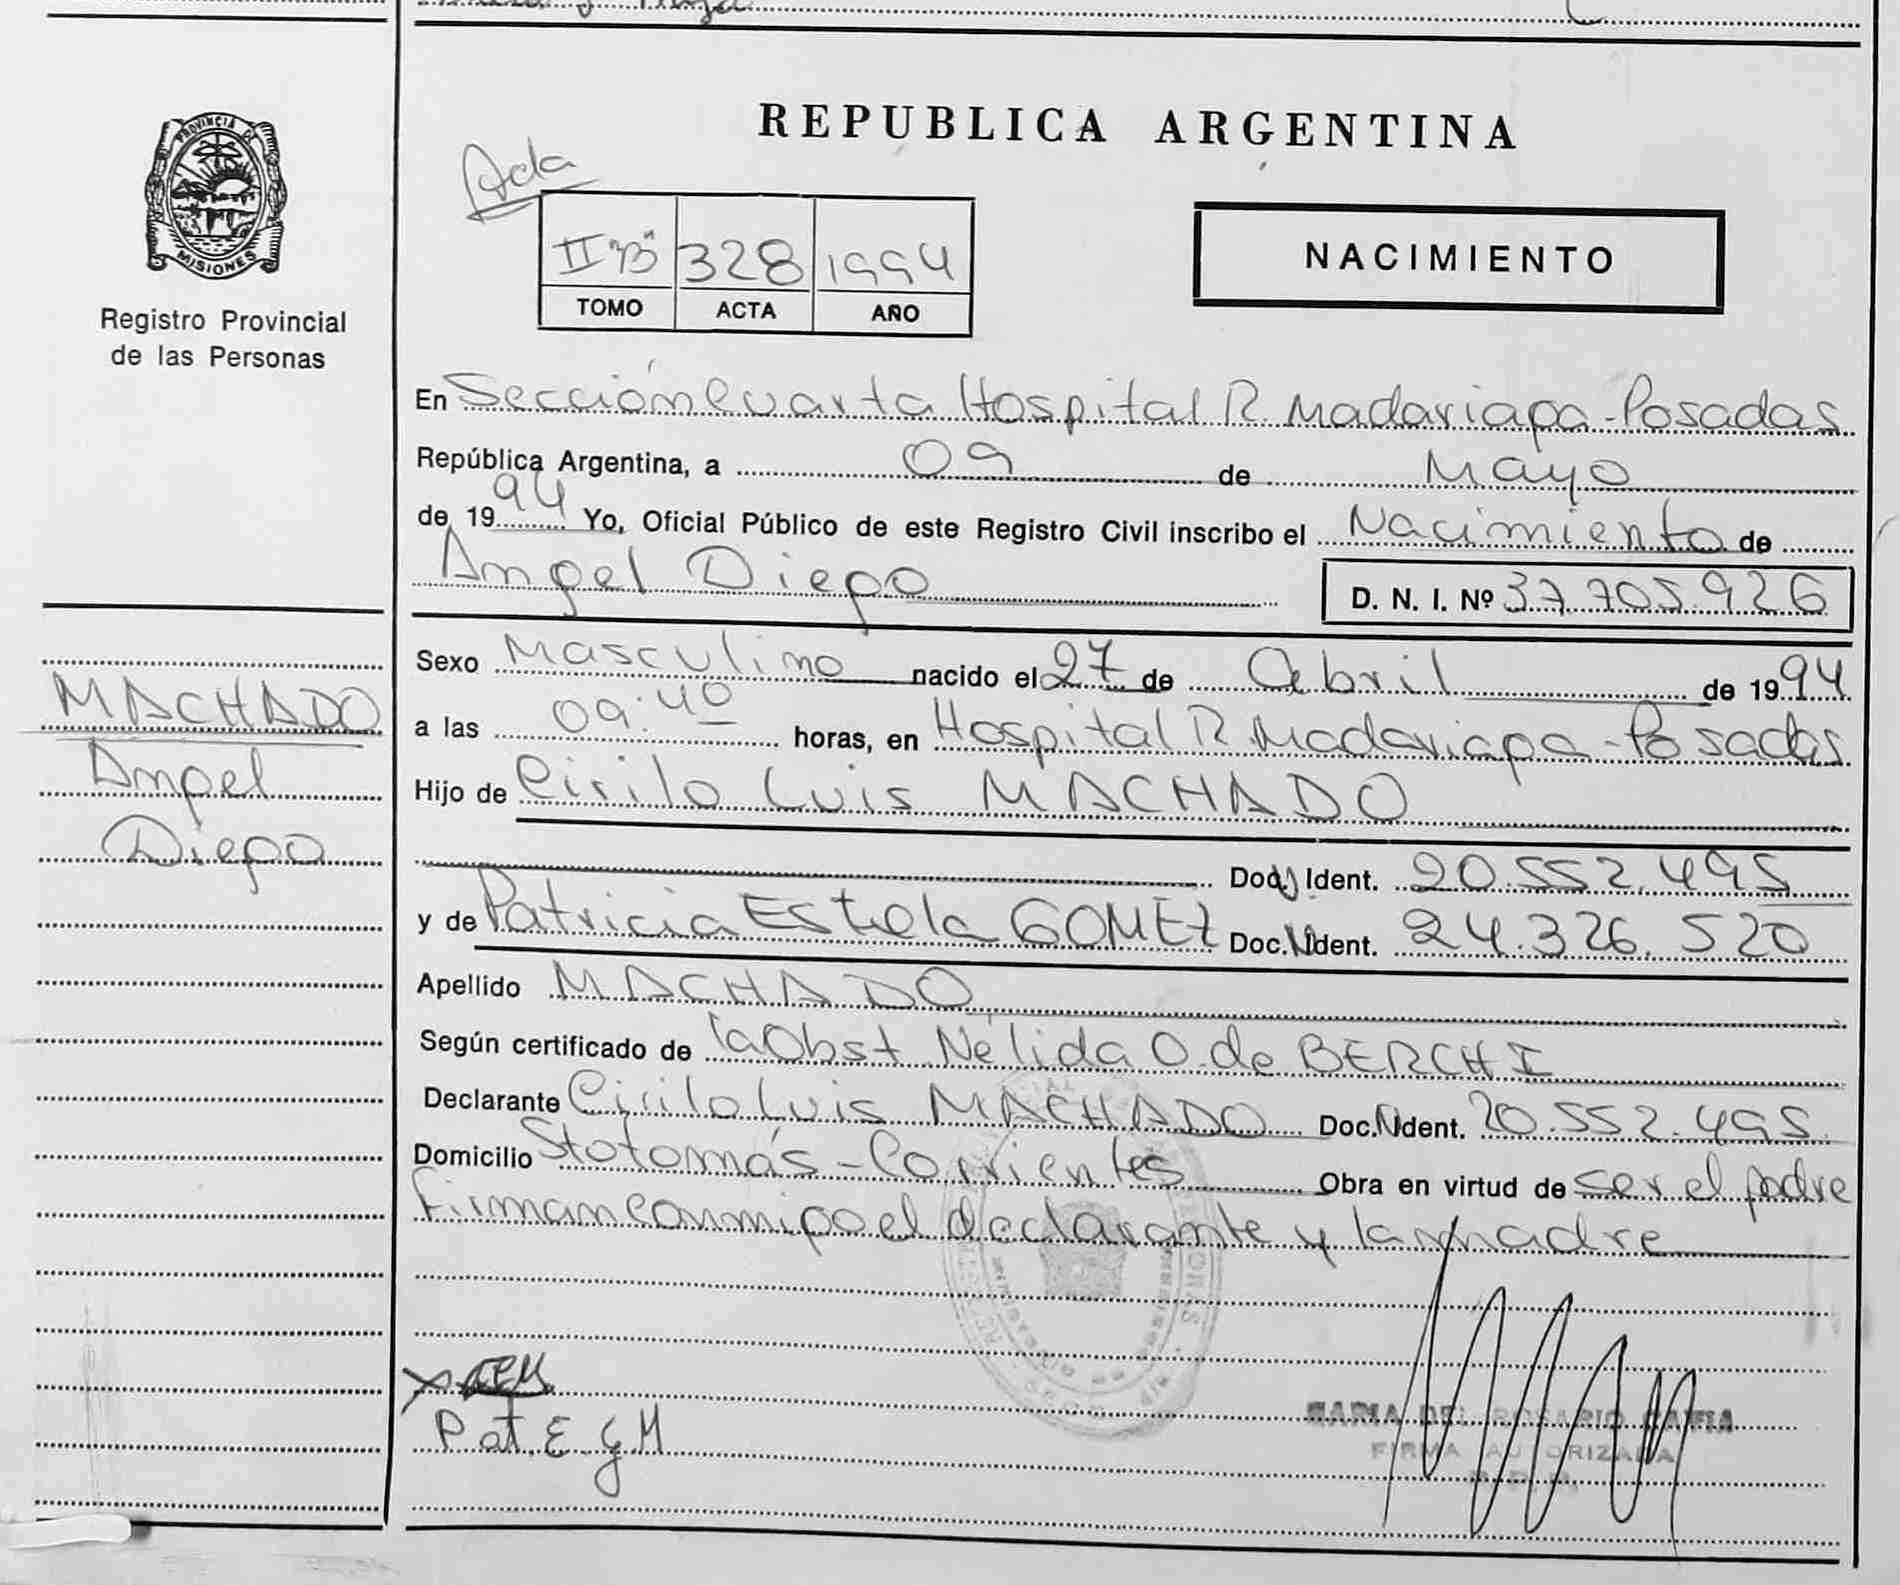 REPUBLICA ARGENTINA
Acta
II "B" 328 1994
TOMO ACTA AÑO
NACIMIENTO
PROVINCIA DE
MISIONES
Registro Provincial
de las Personas
MACHADO
Angel
Diego
En Sección Cuarta Hospital R. Madariaga - Posadas
República Argentina, a 09 de Mayo
de 1994 Yo, Oficial Público de este Registro Civil inscribo el Nacimiento de
Angel Diego D. N. I. Nº 37.705.926
Sexo Masculino nacido el 27 de Abril de 1994
a las 09:40 horas, en Hospital R. Madariaga - Posadas
Hijo de Cirilo Luis MACHADO
Doc. Ident. 20.552.495
y de Patricia Estela GOMEZ Doc. Ident. 24.326.520
Apellido MACHADO
Según certificado de la Obst Nélida O. de BERCHI
Declarante Cirilo Luis MACHADO Doc. Ident. 20.552.495
Domicilio Sto tomás - Corrientes Obra en virtud de ser el padre
Firman conmigo el declarante y la madre
Pat. E. G M
MARIA DEL ROSARIO
FIRMA AUTORIZADA